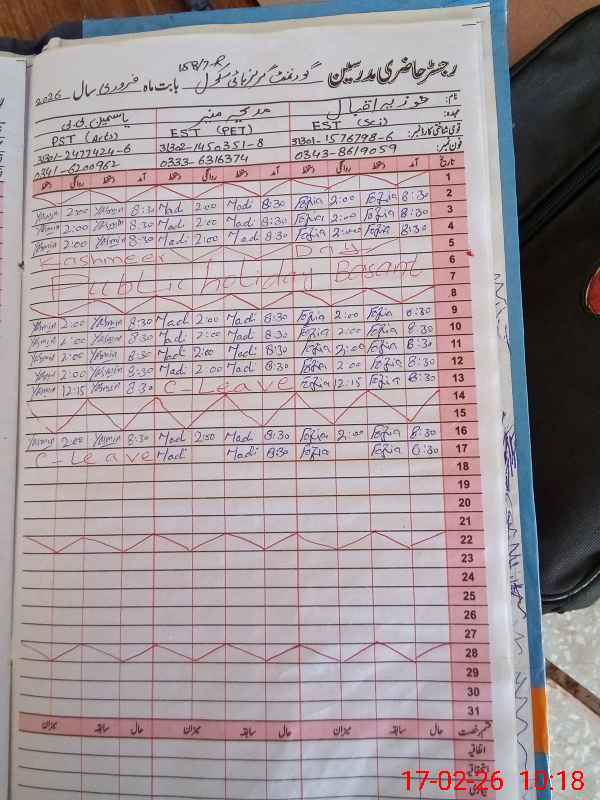 رجسٹر حاضری مدرسین گورنمنٹ گرلز ہائی سکول 158/7-R بابت ماہ فروری سال 2026
نام: فوزیہ اقبال مدیحہ منیر یاسمین بی بی
عہدہ: EST (Sci) EST (PET) PST (Arts)
قومی شناختی کارڈ نمبر: 31301-1576798-6 31302-1450351-8 31301-2477424-6
فون نمبر: 0343-8619059 0333-6316374 0341-6200962
تاریخ آمد دستخط روانگی دستخط آمد دستخط روانگی دستخط آمد دستخط روانگی دستخط
1
Yasmin 2:00 Yasmin 8:30 Madi 2:00 Madi 8:30 Fozia 2:00 Fozia 8:30 2
Yasmin 2:00 Yasmin 8:30 Madi 2:00 Madi 8:30 Fozia 2:00 Fozia 8:30 3
Yasmin 2:00 Yasmin 8:30 Madi 2:00 Madi 8:30 Fozia 2:00 Fozia 8:30 4
Kashmeer Day 5
6
Public holiday Basant 7
8
Yasmin 2:00 Yasmin 8:30 Madi 2:00 Madi 8:30 Fozia 2:00 Fozia 8:30 9
Yasmin 2:00 Yasmin 8:30 Madi 2:00 Madi 8:30 Fozia 2:00 Fozia 8:30 10
Yasmin 2:00 Yasmin 8:30 Madi 2:00 Madi 8:30 Fozia 2:00 Fozia 8:30 11
Yasmin 2:00 Yasmin 8:30 Madi 2:00 Madi 8:30 Fozia 2:00 Fozia 8:30 12
Yasmin 12:15 Yasmin 8:30 C-Leave Fozia 12:15 Fozia 8:30 13
14
15
Yasmin 2:00 Yasmin 8:30 Madi 2:00 Madi 8:30 Fozia 2:00 Fozia 8:30 16
C-Leave Madi Madi 8:30 Fozia Fozia 8:30 17
18
19
20
21
22
23
24
25
26
27
28
29
30
31
قسم رخصت حال سابقہ میزان حال سابقہ میزان حال سابقہ میزان
اتفاقیہ
استحقاقیہ
بیماری
17-02-26 10:18